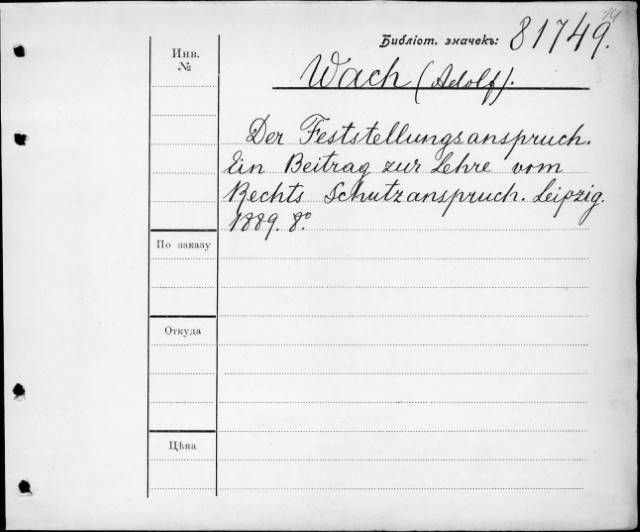 19
Библіот. значекъ: 81749.
Инв.
№
Wach (Adolf).
Der Feststellungsanspruch.
Ein Beitrag zur Lehre vom
Rechts Schutzanspruch. Leipzig.
1889. 8°.
По заказу
Откуда
Цѣна